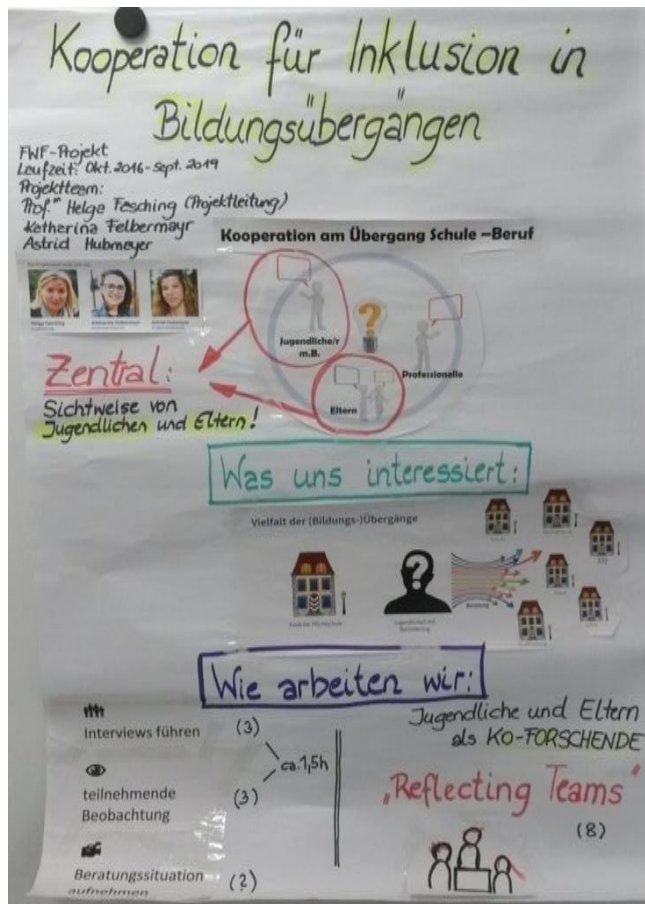 Kooperation für Inklusion in
Bildungsübergängen
FWF-Projekt
Laufzeit: Okt. 2016-Sept. 2019
Projektteam:
Prof.in Helga Fasching (Projektleitung)
Katharina Felbermayr
Astrid Hubmayer
Kooperation am Übergang Schule –Beruf
Jugendliche/r
m.B.
Professionelle
Eltern
?
Zentral:
Sichtweise von
Jugendlichen und Eltern!
Was uns interessiert:
Vielfalt der (Bildungs-)Übergänge
?
Beratung
Wie arbeiten wir:
Interviews führen (3)
ca. 1,5h
teilnehmende
Beobachtung (3)
Beratungssituation
aufnehmen (?)
Jugendliche und Eltern
als KO-FORSCHENDE
„Reflecting Teams"
(8)